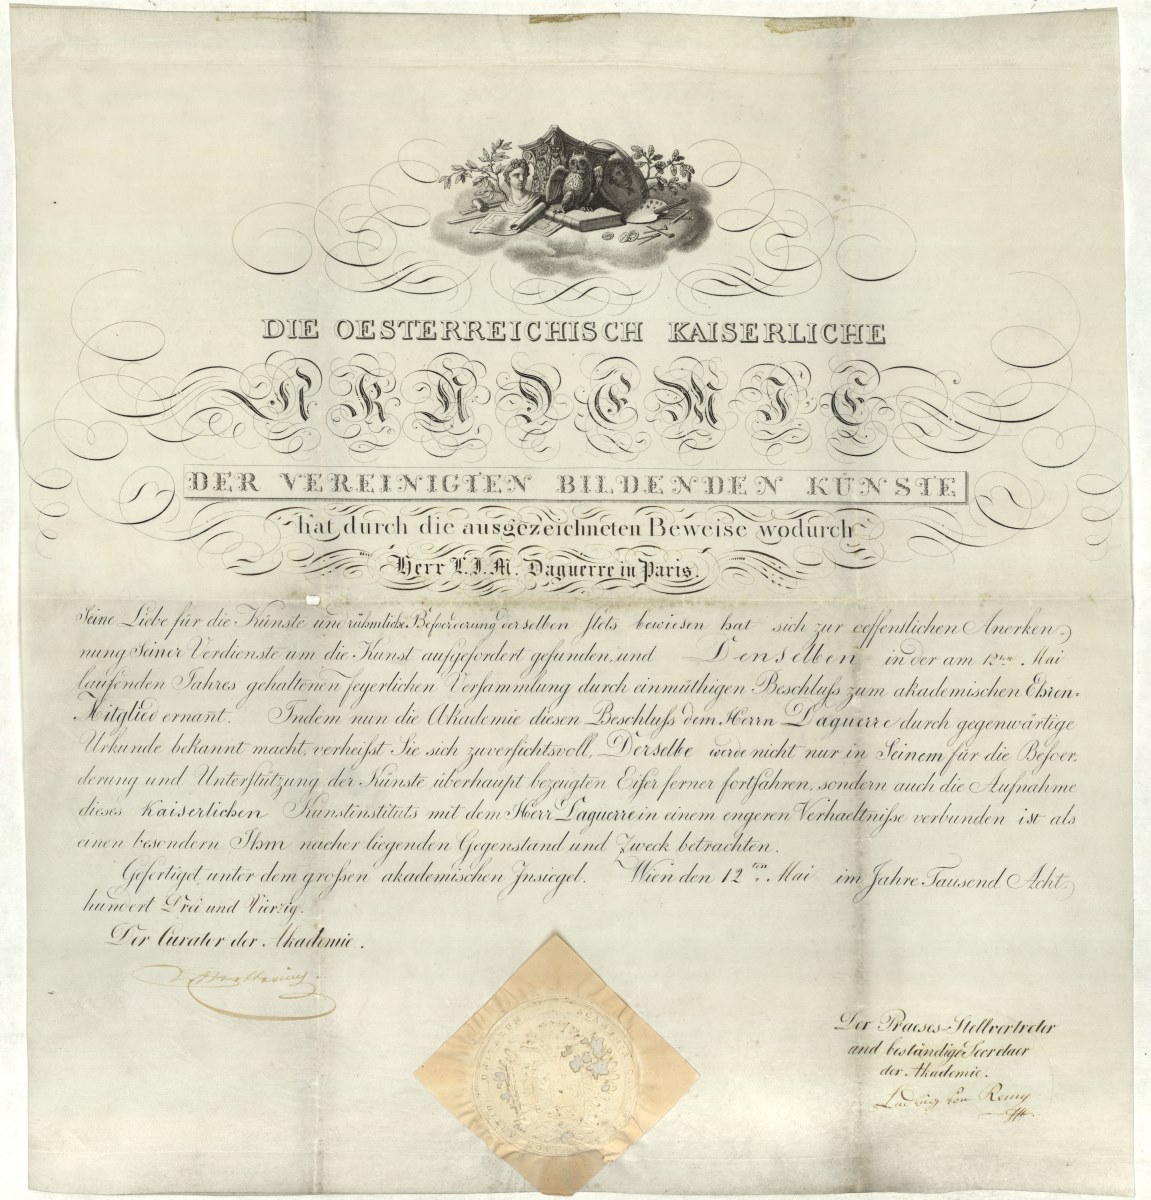 DIE OESTERREICHISCH KAISERLICHE
AKADEMIE
DER VEREINIGTEN BILDENDEN KÜNSTE
hat durch die ausgezeichneten Beweise wodurch
Herr L.J.M. Daguerre in Paris.
Seine Liebe für die Künste und rühmliche Befoerderung derselben stets bewiesen hat sich zur oeffentlichen Anerken-
nung Seiner Verdienste um die Kunst aufgefordert gefunden, und Denselben in der am 12ten Mai
laufenden Jahres gehaltenen feyerlichen Versammlung durch einmüthigen Beschluß zum akademischen Ehren-
Mitglied ernant. Indem nun die Akademie diesen Beschluß dem Herrn Daguerre durch gegenwärtige
Urkunde bekannt macht, verheißt Sie sich zuversichtsvoll, Derselbe werde nicht nur in Seinem für die Befoer-
derung und Unterstützung der Künste überhaupt bezeugten Eifer ferner fortfahren, sondern auch die Aufnahme
dieses kaiserlichen Kunstinstituts mit dem Herr Daguerre in einem engeren Verhaeltniße verbunden ist als
einen besondern Ihm nacher liegenden Gegenstand und Zweck betrachten.
Gefertiget unter dem großen akademischen Insiegel. Wien den 12ten Mai im Jahre Tausend Acht-
hundert Drei und Vierzig.
Der Curator der Akademie.
Der Praeses-Stellvertreter
und beständige Secretaer
der Akademie.
Ludwig von Remy